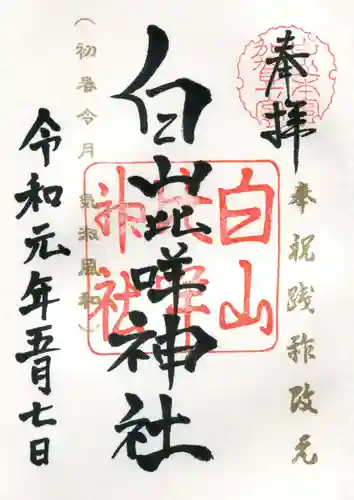 奉拝
奉祝践祚改元
白山比咩神社
白山
比咩
神社
（初春令月 氣淑風和）
令和元年五月七日